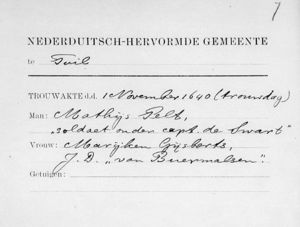 7
NEDERDUITSCH-HERVORMDE GEMEENTE
te Tuil
TROUWAKTE d.d. 1 November 1640 (trouwsdag)
Man: Mathijs Pelt,
„soldaet onder capt. de Swart"
Vrouw: Marijken Gijsberts,
J.D. „van Buermalsen".
Getuigen: